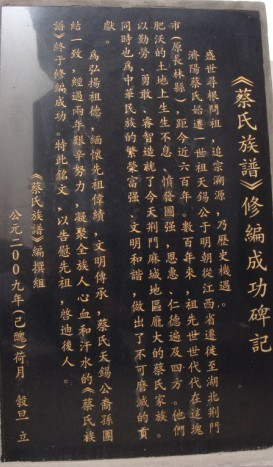 《蔡氏族譜》修編成功碑記
盛世尋根問祖，追宗溯源，乃歷史機遇。
濟陽蔡氏始遷一世祖天錫公于明朝從江西省遷徙至湖北荆門
市（原長林縣），距今近六百年。數百年來，祖先世世代代在這塊
肥沃的土地上生生不息、憤發圖强，恩惠、仁德遍及四方。他們
以勤勞、勇敢、睿智造就了今天荆門麻城地區龐大的蔡氏家族。
同時也為中華民族的繁榮富强、文明和諧，做出了不可磨滅的貢
獻。
為弘揚祖德，緬懷先祖偉績，文明傳承，蔡氏天錫公裔孫團
結一致，經過兩年艱辛努力，凝聚全族人心血和汗水的《蔡氏族
譜》終于修編成功。特此銘文，以告慰先祖，啓迪後人。
《蔡氏族譜》編撰組
公元二00九年（己醜）荷月 穀旦 立